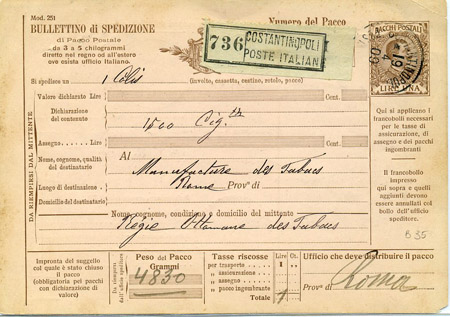 Mod. 251
BULLETTINO di SPEDIZIONE
di Pacco Postale
da 3 a 5 chilogrammi
diretto nel regno od all'estero
ove esista ufficio Italiano.
Numero del Pacco
736
COSTANTINOPOLI
POSTE ITALIAN
PACCHI POSTALI
LIRE UNA
Si spedisce un 1 Colis (involto, cassetta, cestino, rotolo, pacco)
Valore dichiarato Lire Cent.
Dichiarazione del contenuto
1500 Cig.
Assegno Lire Cent.
Nome, cognome, qualità del destinatario
Al Manufacture des Tabacs
Luogo di destinazione
Rome Prov.ª di
Domicilio del destinatario
Nome, cognome, condizione e domicilio del mittente
Régie Ottomane des Tabacs
DA RIEMPIERSI DAL MITTENTE
Qui si applicano i
francobolli necessari
per le tasse di
assicurazione, di
assegno e dei pacchi
ingombranti
Il francobollo
impresso
qui sopra e quelli
aggiunti devono
essere annullati col
bollo dell'ufficio
speditore.
B 35
Impronta del suggello
col quale è stato chiuso
il pacco
(obbligatoria pei pacchi
con dichiarazione di
valore)
Da riempirsi dall'uffizio speditore
Peso del Pacco
Grammi
4830
Tasse riscosse Lire C.
per trasporto 1
„ assicurazione
„ assegno
„ pacco ingombrante
Totale 1
Ufficio che deve distribuire il pacco
Roma
Prov.ª di